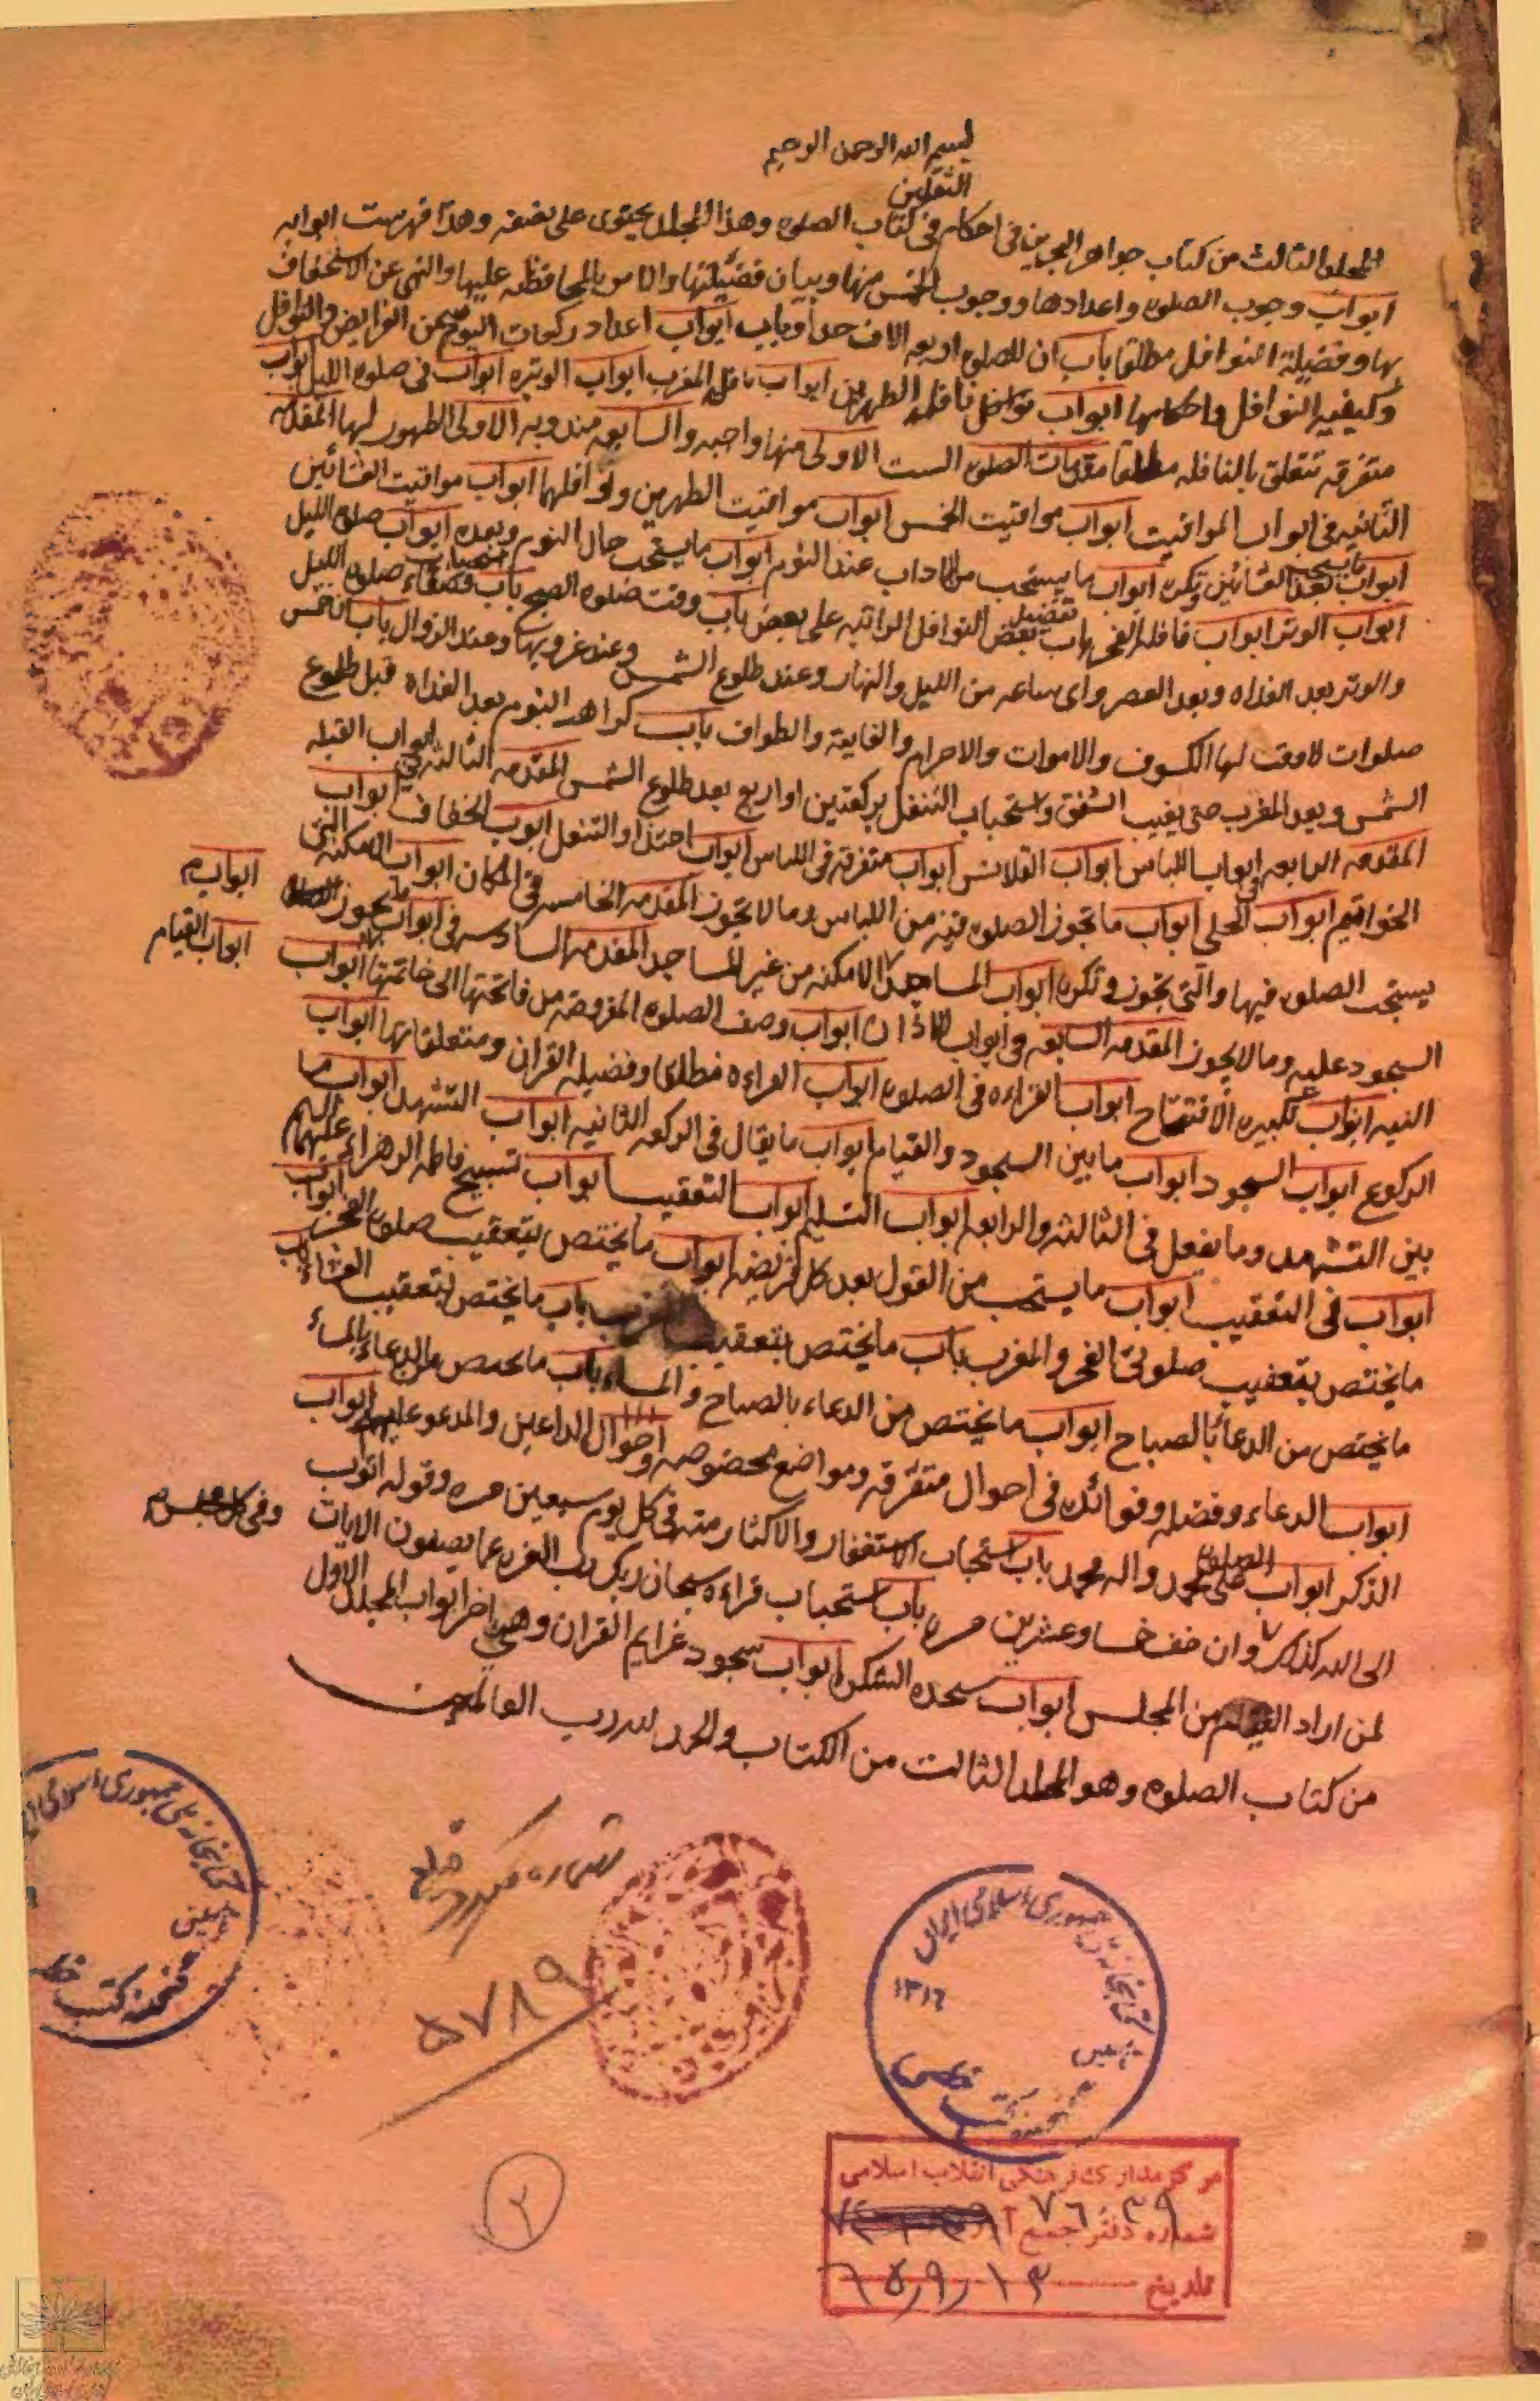 بسم الله الرحمن الرحيم
الثقلين
المجلد الثالث من كتاب جواهر البحرين في احكام في كتاب الصلوه وهذا المجلد يحتوى على نصفه وهذا فهرست ابوابه
ابواب وجوب الصلوه واعدادها ووجوب الخمس منها وبيان فضيلتها والامر بالمحافظه عليها والنهى عن الاستخفاف
بها وفضيلة النوافل مطلقا باب ان للصلوه اربعه الاف حدا وباب ابواب اعداد ركعات اليوميه من الفرايض والنوافل
وكيفيه النوافل واحكامها ابواب نوافل نافله الظهرين ابواب نافله المغرب ابواب الوتيره ابواب في صلوه الليل ابواب
متفرقه تتعلق بالنافله مطلقا مقدمات الصلوه الست الاولى منها واجبه والسابعه مندوبه الاولى الطهور لها المقدمه
الثانيه في ابواب المواقيت ابواب مواقيت الخمس ابواب مواقيت الظهرين ونوافلهما ابواب مواقيت العشائين
ابواب ما يستحب بعد العشائين ويكره ابواب ما يستحب من الاداب عند النوم ابواب ما يستحب حال النوم وبعده ابواب صلوه الليل
ابواب الوتر ابواب نافله الفجر باب تفضيل بعض النوافل الراتبه على بعض باب وقت صلوه الصبح باب قضاء صلوه الليل
والوتر بعد الغداه وبعد العصر واى ساعه من الليل والنهار وعند طلوع الشمس وعند غروبها وعند الزوال باب ان خمس
صلوات لا وقت لها الكسوف والاموات والاحرام والفايته والطواف باب كراهه النوم بعد الغداه قبل طلوع
الشمس وبعد المغرب حتى يغيب الشفق واستحباب التنفل بركعتين او اربع بعد طلوع الشمس المقدمه الثالثه في ابواب القبله
المقدمه الرابعه في ابواب اللباس ابواب القلانس ابواب متفرقه في اللباس ابواب احتذاء والتنعل ابواب الخفاف ابواب
ابواب
الخواتيم ابواب الحلى ابواب ما تجوز الصلوه فيه من اللباس وما لا تجوز المقدمه الخامسه في المكان ابواب الامكنه التى
يستحب الصلوه فيها والتى تجوز وتكره ابواب المساجد الامكنه من غير المساجد المقدمه السادسه في ابواب ما يجوز
ابواب القيام
السجود عليه وما لا يجوز المقدمه السابعه في ابواب الاذان ابواب وصف الصلوه المفروضه من فاتحتها الى خاتمتها ابواب
النيه ابواب تكبيره الافتتاح ابواب القراءه في الصلوه ابواب القراءه مطلقا وفضيله القران ومتعلقاتها ابواب
الركوع ابواب السجود ابواب ما بين السجود والقيام ابواب ما يقال في الركعه الثانيه ابواب التشهد ابواب ما
بين التشهد وما يفعل في الثالثه والرابعه ابواب التسليم ابواب التعقيب ابواب تسبيح فاطمه الزهراء عليها السلم
ابواب في التعقيب ابواب ما يستحب من القول بعد كل فريضه ابواب ما يختص بتعقيب صلوه الفجر ابواب
ما يختص بتعقيب صلوتى الفجر والمغرب باب ما يختص بتعقيب المغرب باب ما يختص بتعقيب العشاء باب
ما يختص من الدعا بالصباح ابواب ما يختص من الدعاء بالصباح والمساء باب ما يختص من الدعاء بالمساء
ابواب الدعاء وفضله وفوائده في احوال متفرقه ومواضع مخصوصه واحوال الداعين والمدعو عليهم ابواب
الذكر ابواب الصلوه على محمد واله محمد باب استحباب الاستغفار والاكثار منه في كل يوم سبعين مره وقوله اتوب
وفى كل مجلس
الى الله كذلك وان خف خمسا وعشرين مره باب استحباب قراءه سبحان ربك رب العزه عما يصفون الايات
لمن اراد القيام من المجلس ابواب سجده الشكر ابواب سجود عزايم القران وهى اخر ابواب المجلد الاول
من كتاب الصلوه وهو المجلد الثالث من الكتاب والحمد لله رب العالمين
شماره
٥٧٨٩
كتابخانه ملى جمهورى اسلامى ايران
١٣١٦
گنجينه كتب خطى
كتابخانه ملى جمهورى اسلامى ايران
گنجينه كتب خطى
مركز مدارك فرهنگى انقلاب اسلامى
شماره دفتر جمع آورى ٧٦٠٣٩
تاريخ ٦٥/٩/١٣
٢